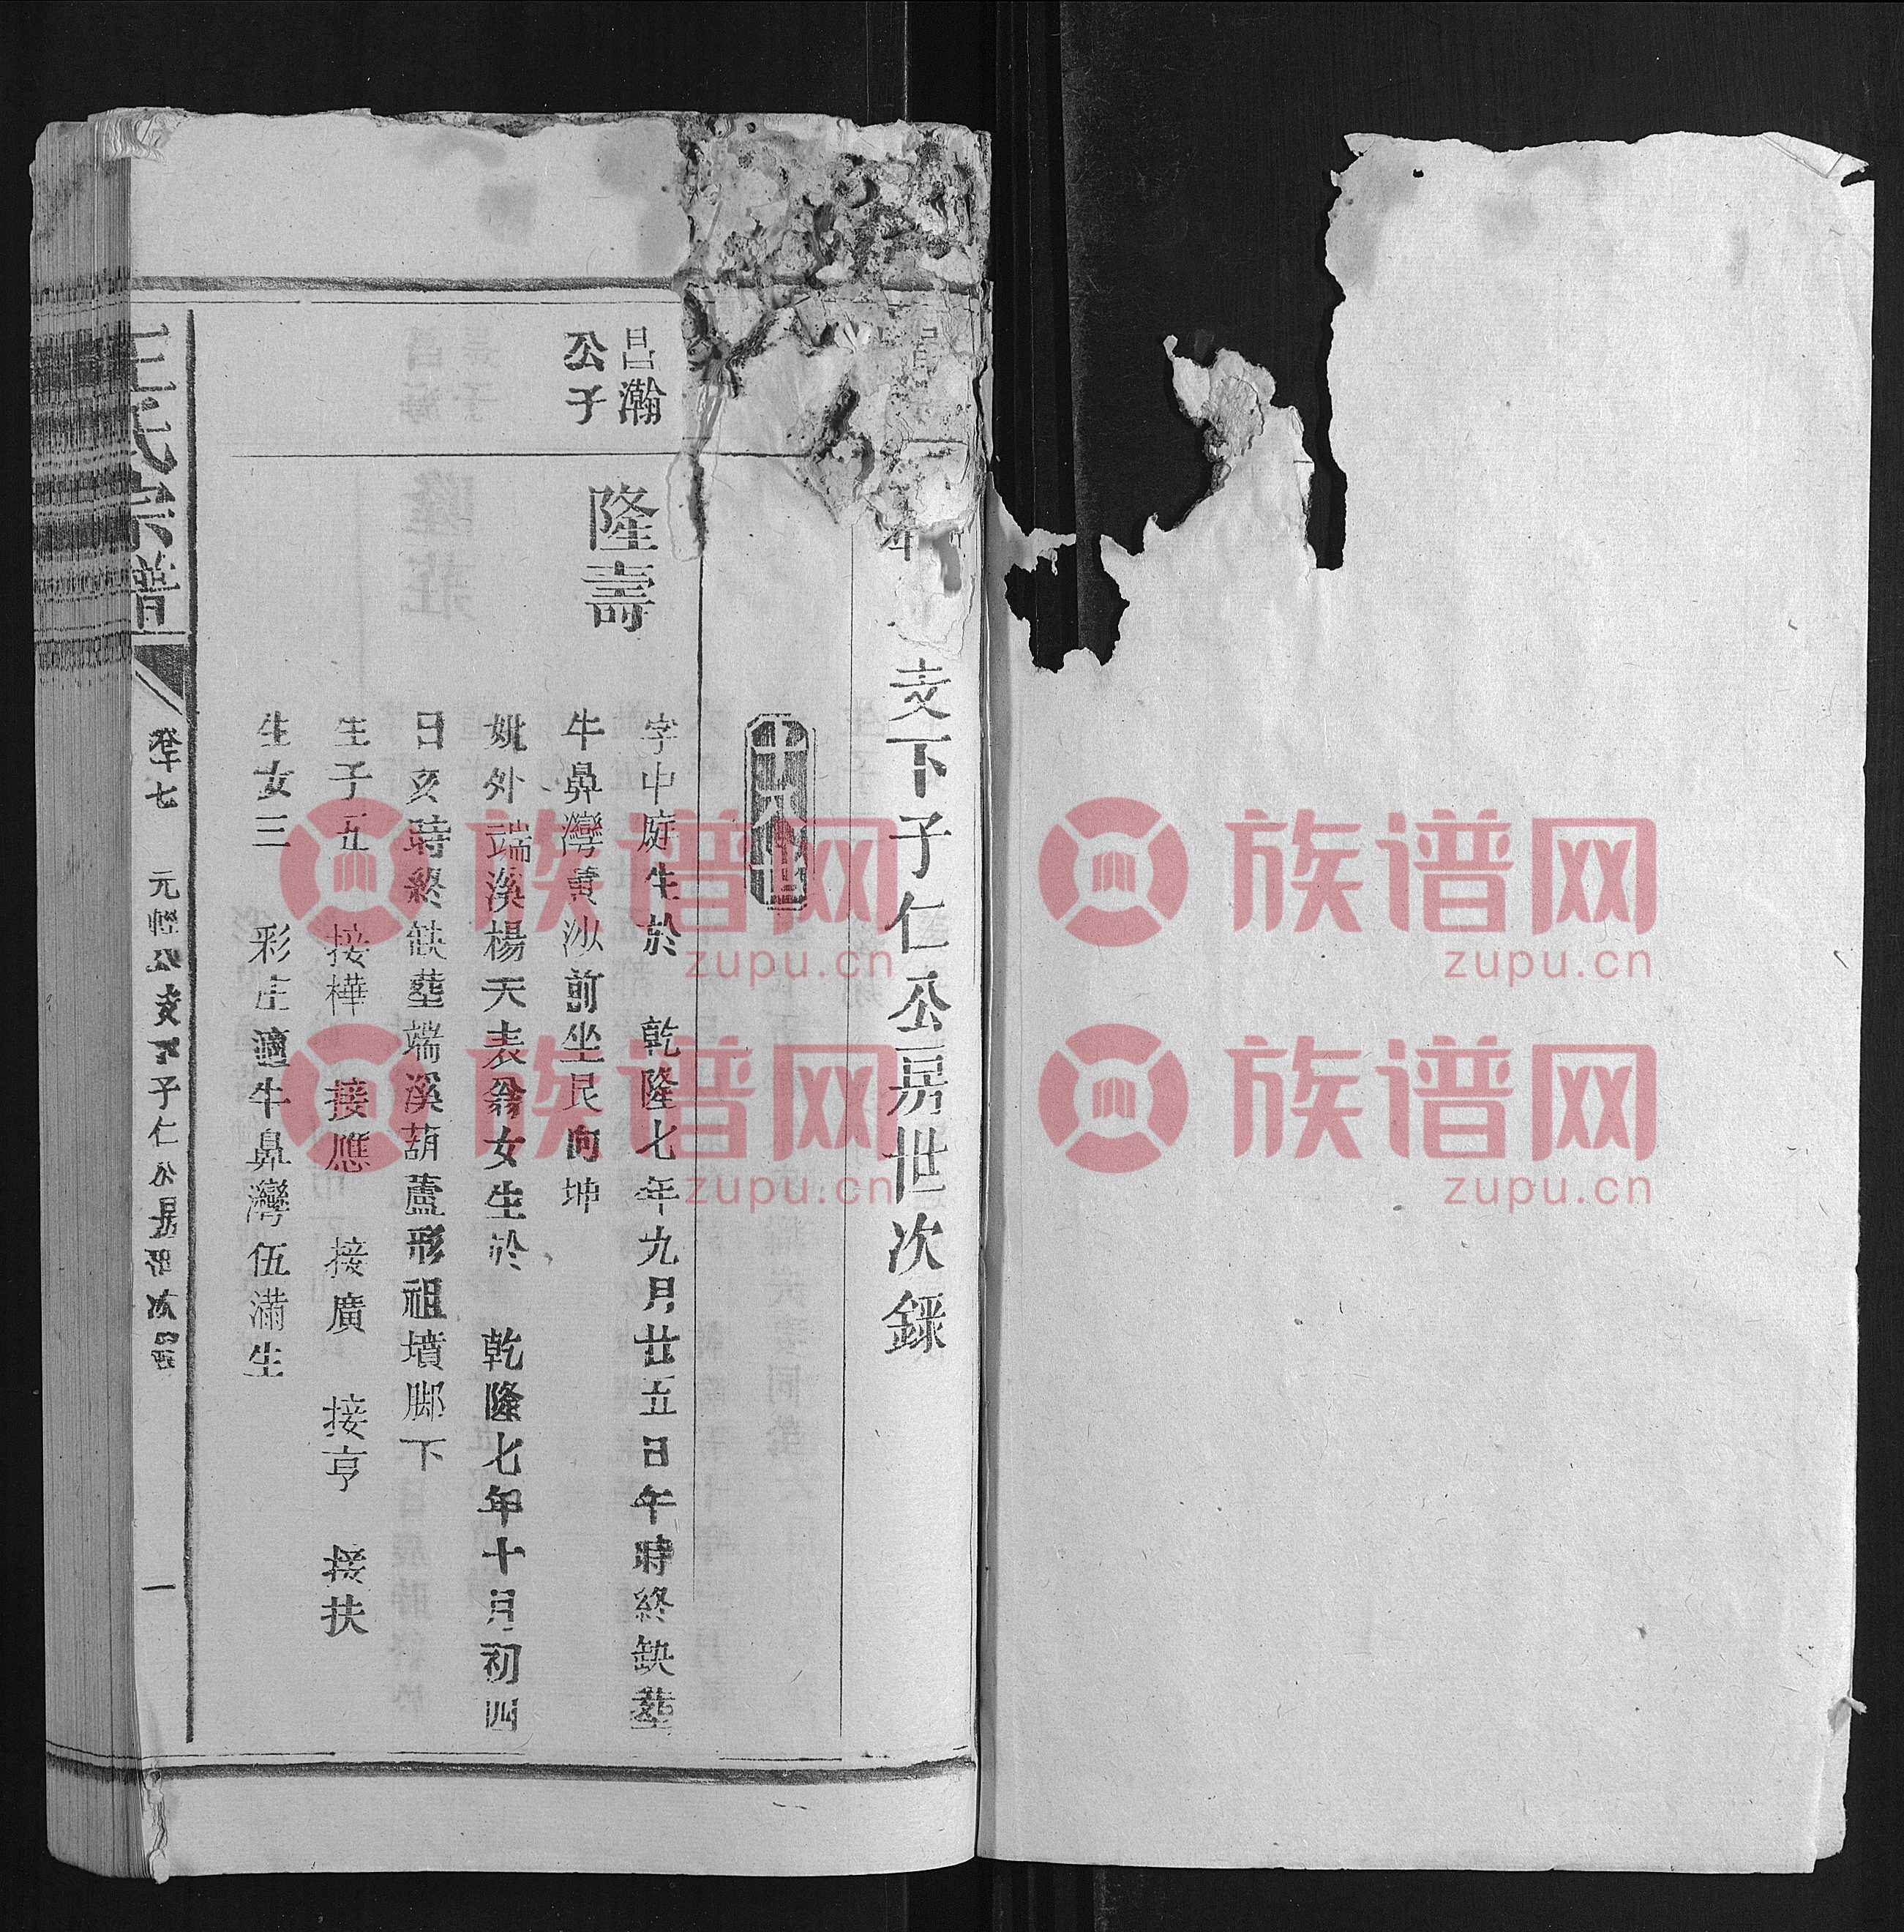 支下子仁公房世次錄
十六世
昌瀚
公子
隆壽
字中庭生於 乾隆七年九月廿五日午時終缺葬
牛鼻灣黄沙前坐艮向坤
妣外端溪楊天表翁女生於 乾隆七年十月初四
日亥時終缺葬端溪葫蘆形祖墳脚下
生子五 接樺 接應 接廣 接亨 接扶
生女三 彩庄適牛鼻灣伍滿生
王氏宗譜
卷十七 元輕公支下子仁公房世次錄 一
族谱网
zupu.cn
族谱网
zupu.cn
族谱网
zupu.cn
族谱网
zupu.cn